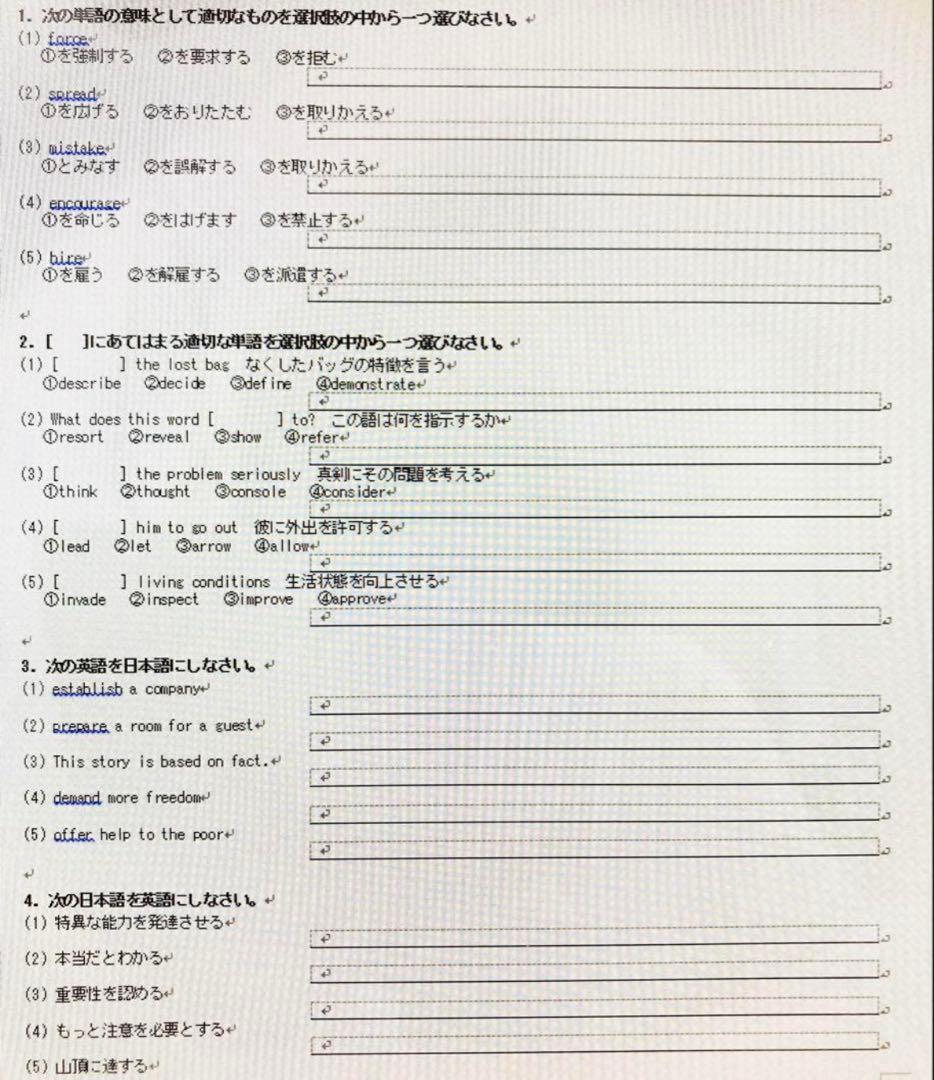 1. 次の単語の意味として適切なものを選択肢の中から一つ選びなさい。
(1) force
①を強制する ②を要求する ③を拒む
(2) spread
①を広げる ②をおりたたむ ③を取りかえる
(3) mistake
①とみなす ②を誤解する ③を取りかえる
(4) encourage
①を命じる ②をはげます ③を禁止する
(5) hire
①を雇う ②を解雇する ③を派遣する
2. [ ]にあてはまる適切な単語を選択肢の中から一つ選びなさい。
(1) [ ] the lost bag なくしたバッグの特徴を言う
①describe ②decide ③define ④demonstrate
(2) What does this word [ ] to? この語は何を指示するか
①resort ②reveal ③show ④refer
(3) [ ] the problem seriously 真剣にその問題を考える
①think ②thought ③console ④consider
(4) [ ] him to go out 彼に外出を許可する
①lead ②let ③arrow ④allow
(5) [ ] living conditions 生活状態を向上させる
①invade ②inspect ③improve ④approve
3. 次の英語を日本語にしなさい。
(1) establish a company
(2) prepare a room for a guest
(3) This story is based on fact.
(4) demand more freedom
(5) offer help to the poor
4. 次の日本語を英語にしなさい。
(1) 特異な能力を発達させる
(2) 本当だとわかる
(3) 重要性を認める
(4) もっと注意を必要とする
(5) 山頂に達する